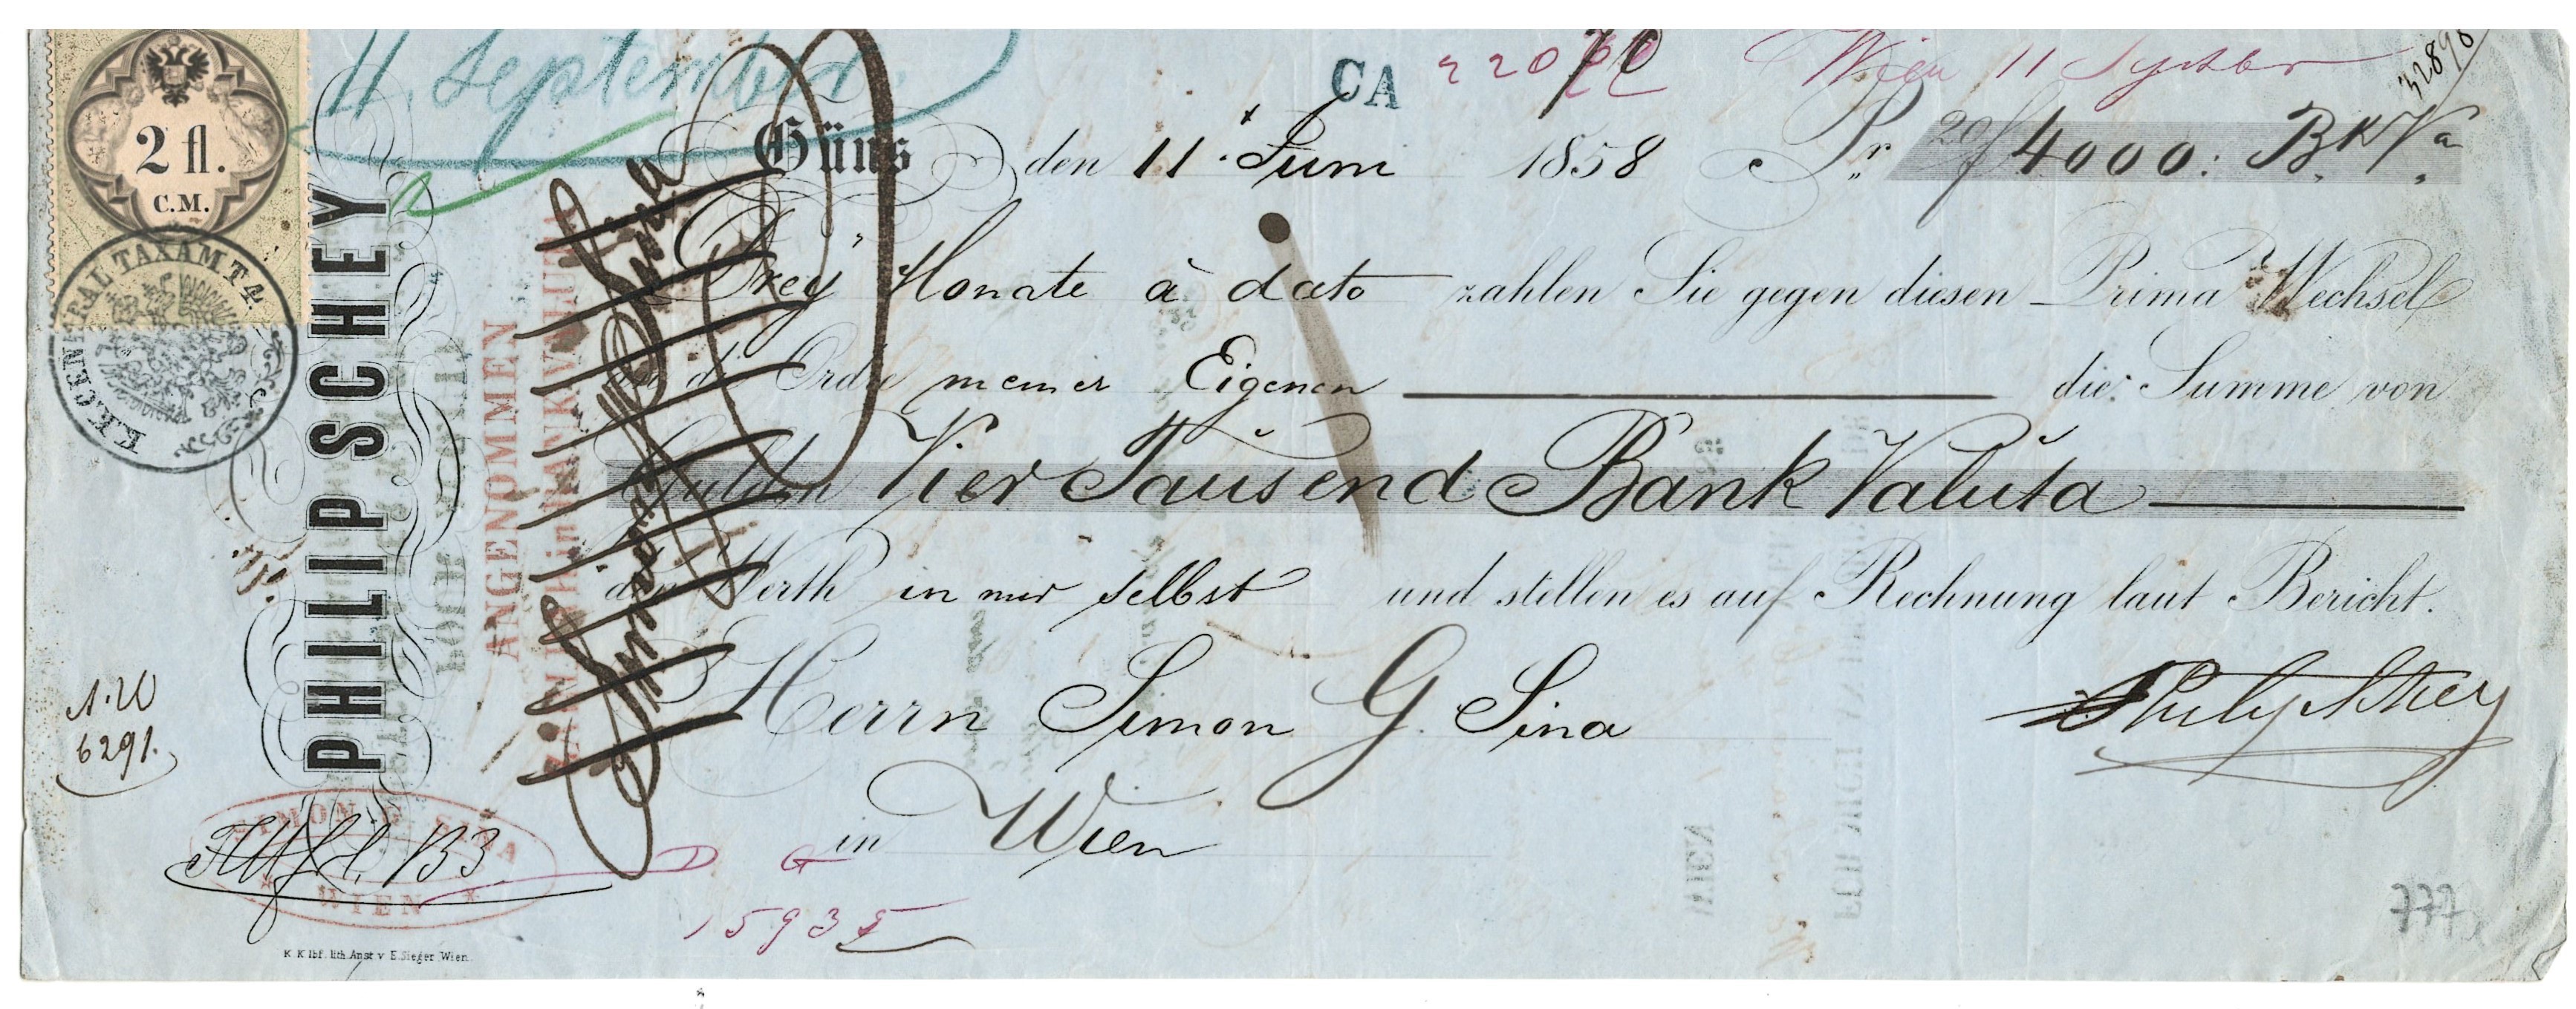 11. September.
CA
Wien 11 Septber
32898
2 fl.
C.M.
K.K. CENTRAL TAXAMT 4.
PHILIP SCHEY
Güns den 11. Juni 1858 Pr. 20/f 4000: Bk Va
Drey Monate à dato zahlen Sie gegen diesen Prima Wechsel
an die Ordre meiner Eigenen die Summe von
Gulden Vier Tausend Bank Valuta
den Werth in mir selbst und stellen es auf Rechnung laut Bericht.
Herrn Simon G. Sina
in Wien
Philip Schey
ANGENOMMEN
ZAHLBAR in BANKVALUTA
Simon G Sina
6291.
SIMON G. SINA
WIEN
15935
777
K K lbf. lith. Anst v. E. Sieger Wien.